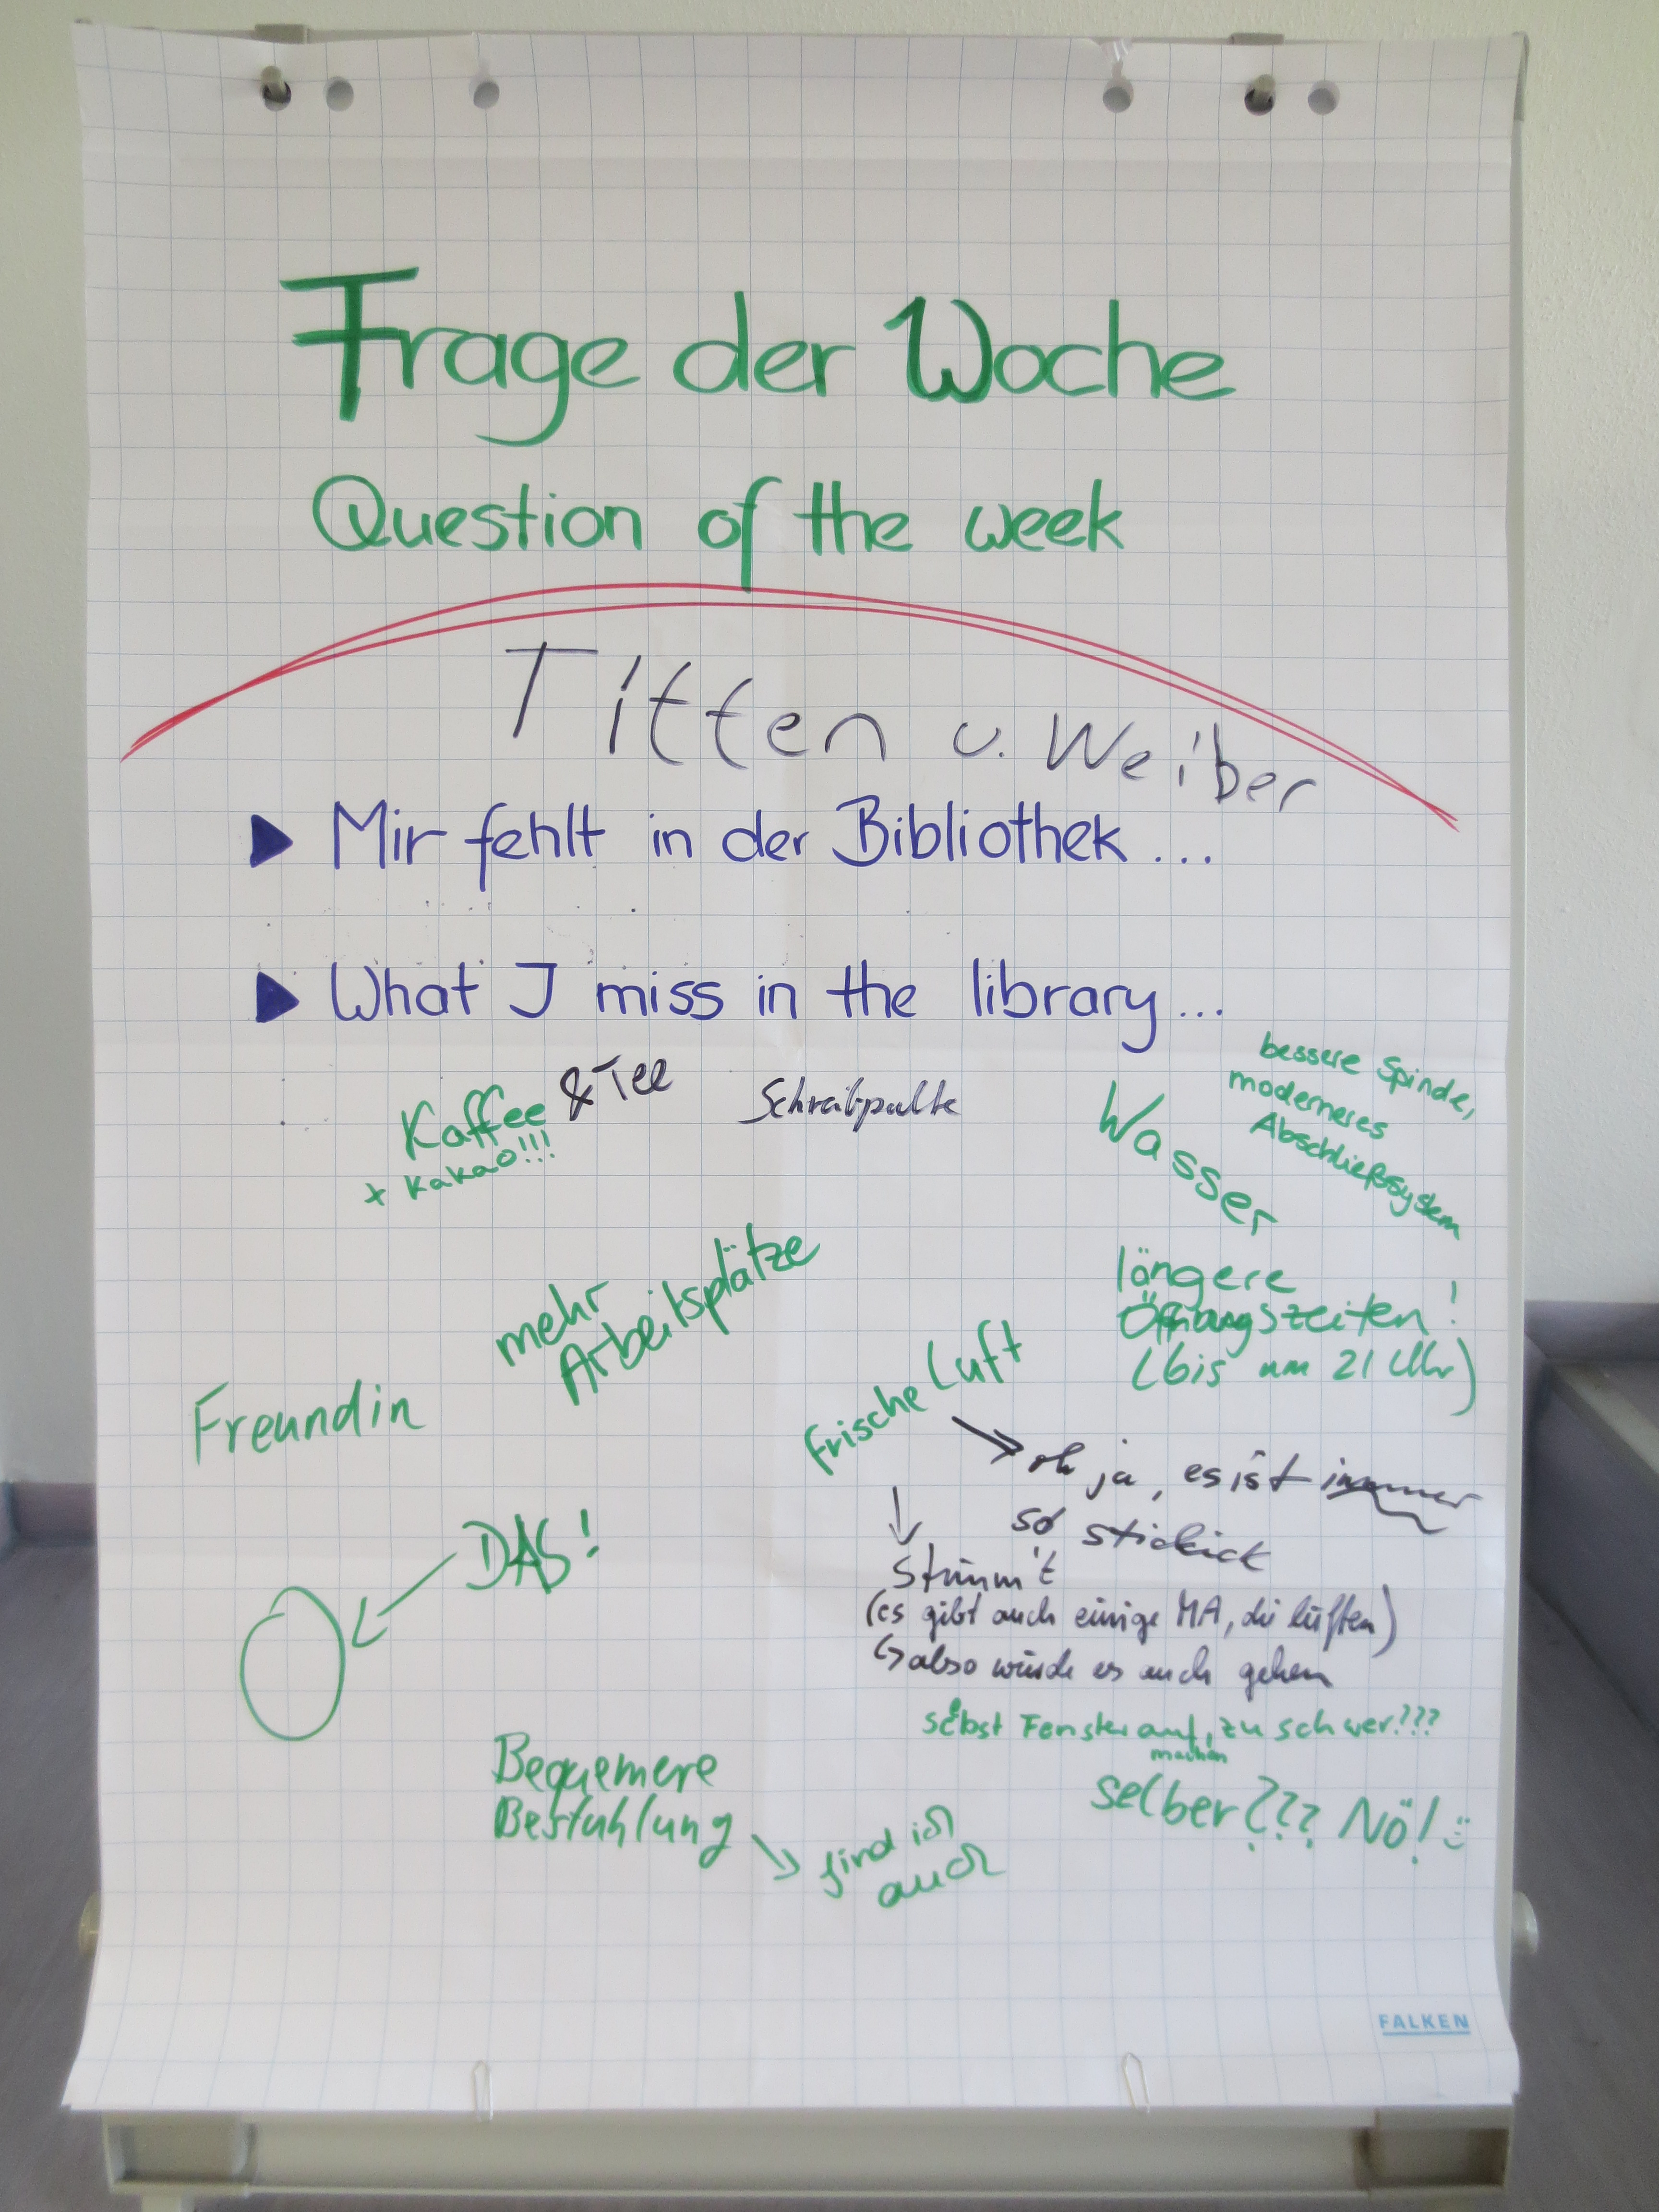 Frage der Woche
Question of the week
Titten u. Weiber
Mir fehlt in der Bibliothek...
What I miss in the library...
Kaffee & Tee
+ Kakao!!!
Schreibpulte
Wasser
bessere Spinde,
moderneres
Abschließsystem
mehr
Arbeitsplätze
längere
Öffnungszeiten!
(bis um 21 Uhr)
Freundin
frische Luft
oh ja, es ist immer
so stickick
DAS!
Stimm't
(es gibt auch einige MA, die lüften)
also würde es auch gehen
selbst Fenster auf, zu schwer???
machen
selber??? Nö!
Bequemere
Bestuhlung
find ich
auch
FALKEN